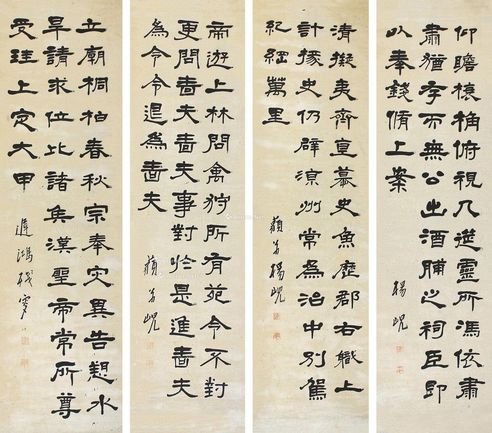 仰瞻榱桷俯視几筵靈所馮依肅
肅猶存而無公出酒脯之祠臣即
以奉錢脩上案
楊峴
清擬夷齊直慕史魚歷郡右職上
計掾史仍辟涼州常為治中別駕
紀綱萬里
藐翁楊峴
帝遊上林問禽狩所有苑令不對
更問嗇夫嗇夫事對於是進嗇夫
為令令退為嗇夫
藐翁峴
立廟桐柏春秋宗奉灾異告愬水
旱請求位比諸矦漢聖帝常所尊
受珪上宅大甲
遲鴻殘叟